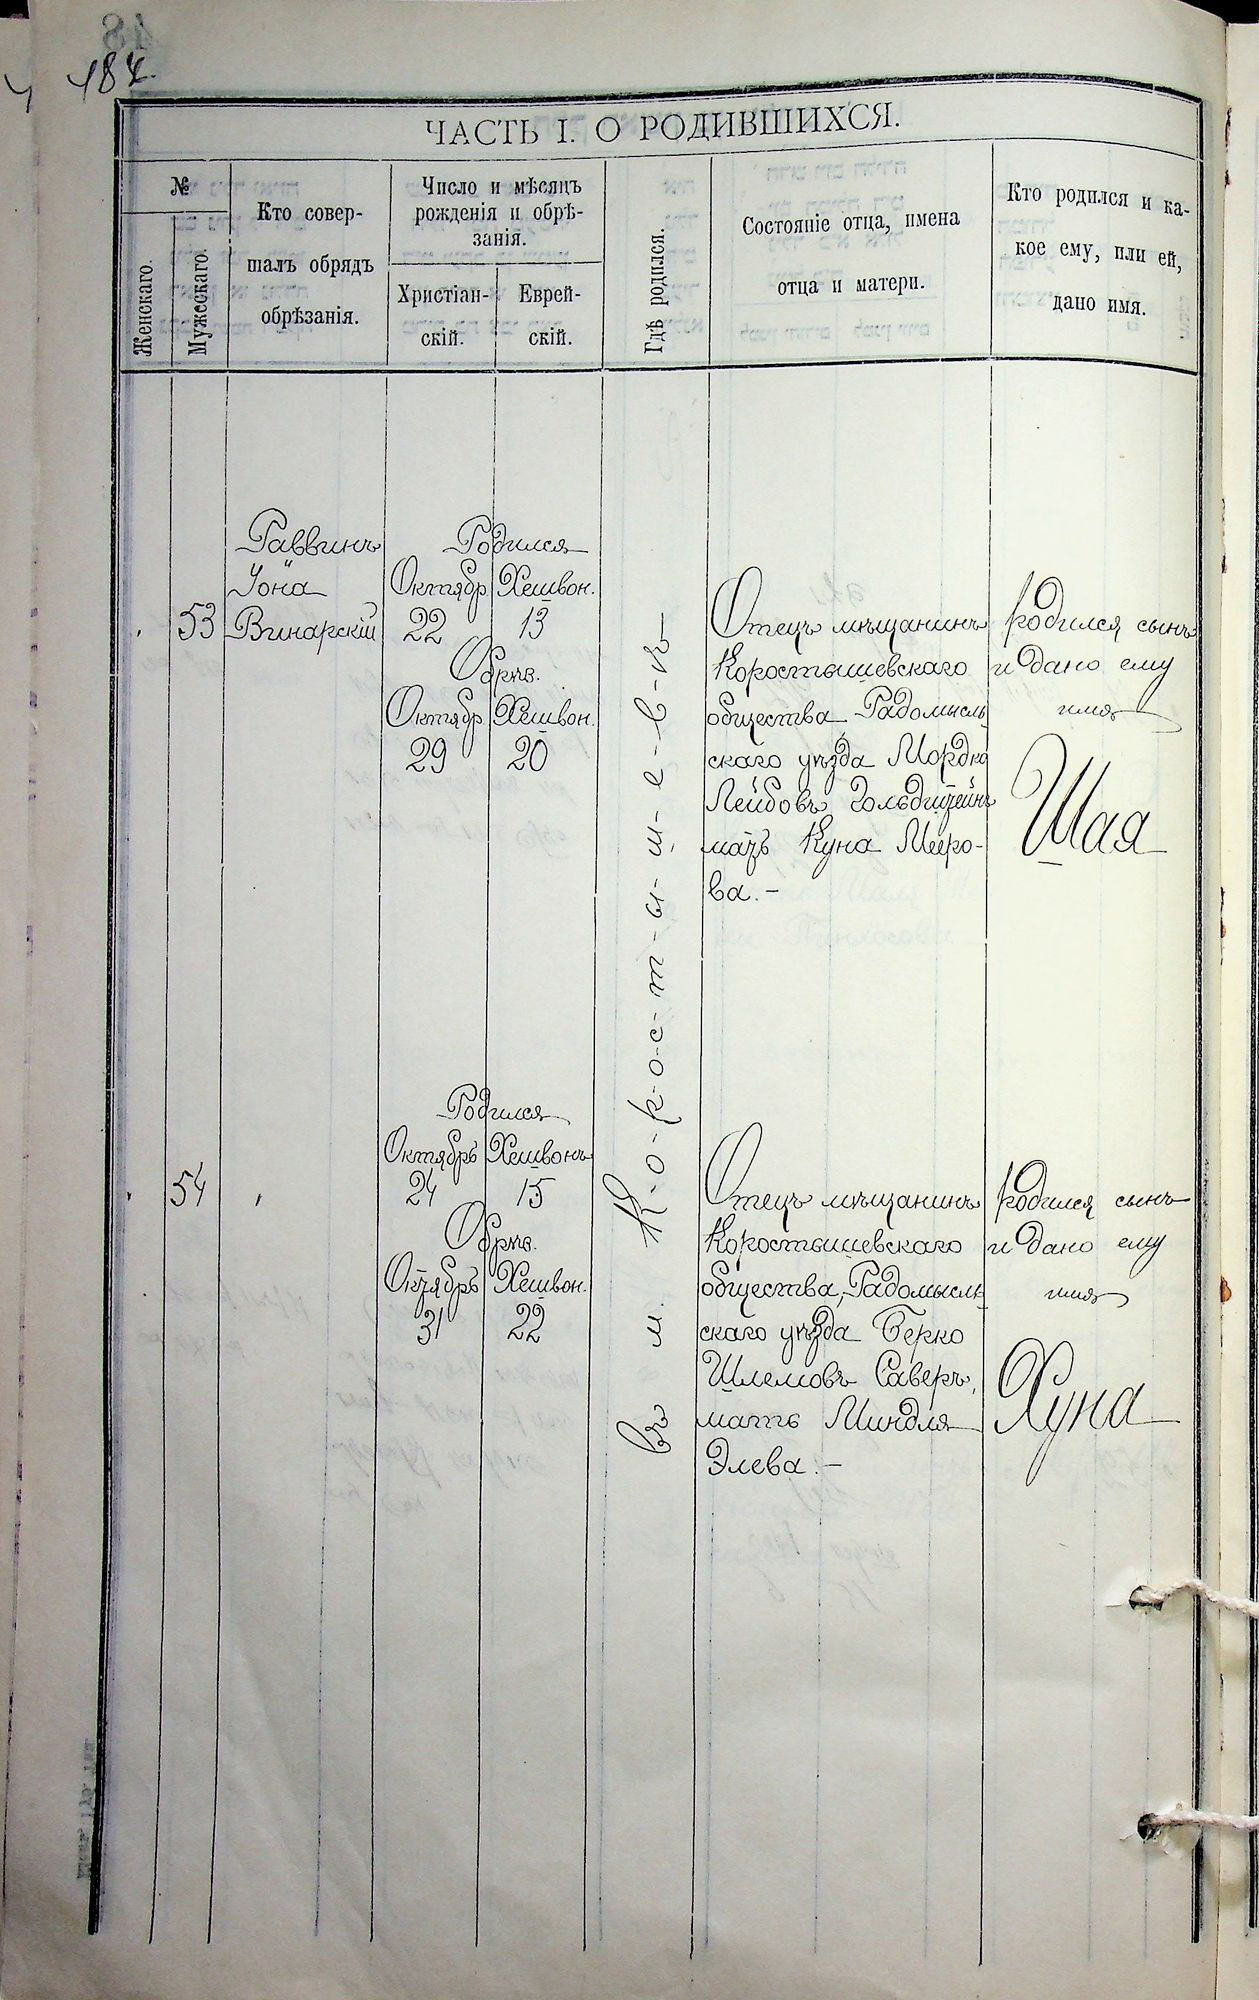 184.
ЧАСТЬ I. О РОДИВШИХСЯ.
№
Женскаго.
Мужескаго.
Кто совер-
шалъ обрядъ
обрѣзанія.
Число и мѣсяцъ
рожденія и обрѣ-
занія.
Христіан-
скій.
Еврей-
скій.
Гдѣ родился.
Состояніе отца, имена
отца и матери.
Кто родился и ка-
кое ему, или ей,
дано имя.
53
Раввинъ
Іона
Винарскій
Родился
Октябр. Хешвон.
22 13
Обрѣз.
Октябр. Хешвон.
29 20
Въ м. К-о-р-о-с-т-ы-ш-е-в-ѣ
Отецъ мѣщанинъ
Коростышевскаго
общества, Радомысль
скаго уѣзда Мордко
Лейбовъ Гольдштейнъ
мать Куна Меиро-
ва.-
Родился сынъ
и дано ему
имя
Шая
54
Родился
Октябрь Хешвонъ
24 15
Обрѣз.
Октябрь Хешвон.
31 22
Отецъ мѣщанинъ
Коростышевскаго
общества, Радомысль
скаго уѣзда Берко
Шлемовъ Саверъ,
мать Миндля
Элева.-
Родился сынъ
и дано ему
имя
Хуна